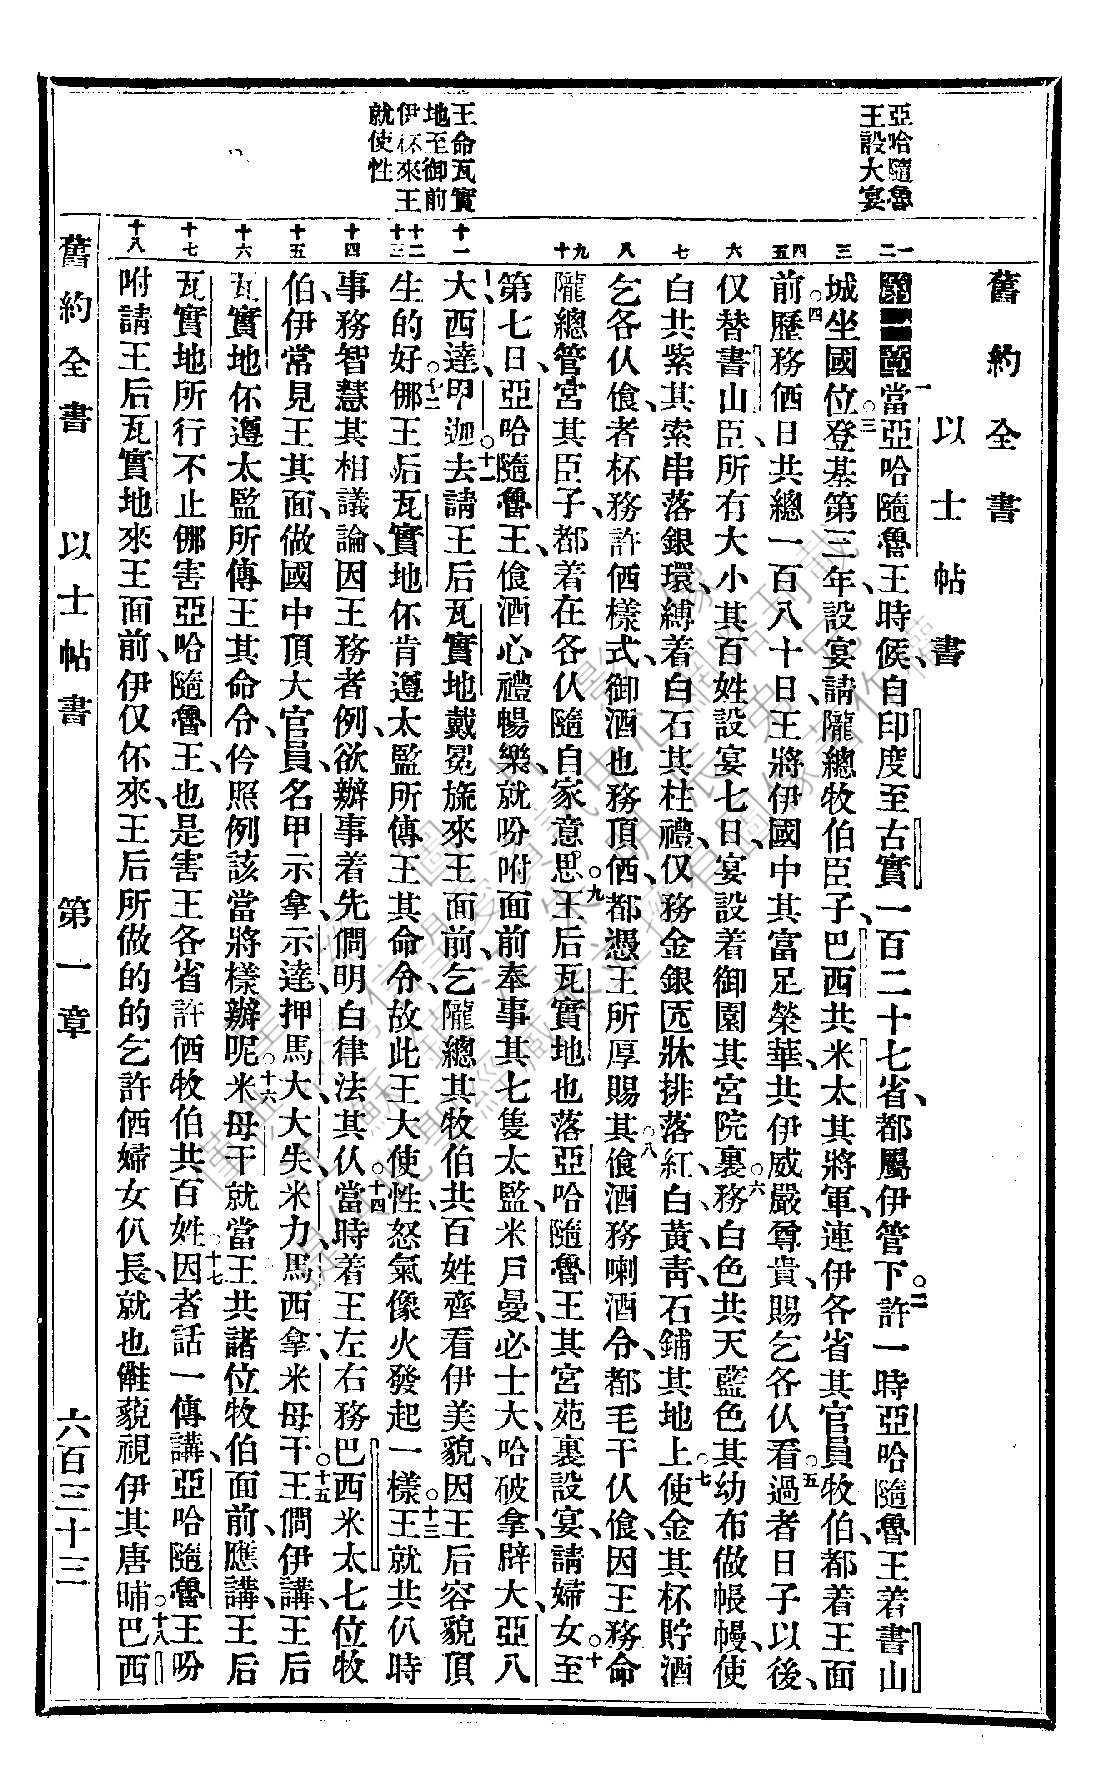 舊約全書
以士帖書
亞哈隨魯
王設大宴
王命瓦實
地至御前
伊伓來王
就使性
一
二
三
四
五
六
七
八
九
十
十一
十二
十三
十四
十五
十六
十七
十八
第一章一當亞哈隨魯王時候、自印度至古實一百二十七省、都屬伊管下許一時亞哈隨魯王着書山
城坐國位。三登基第三年、設宴請隴總牧伯臣子、巴西共米太其將軍、連伊各省其官員牧伯、都着王面
前。四歷務価日共總一百八十日、王將伊國中其富足榮華、共伊威嚴尊貴、賜乞各仈看。五過者日子以後、
仅替書山臣、所有大小其百姓設宴七日、宴設着御園其宮院裏。六務白色共天藍色其幼布做帳幔、使
白共紫其索串落銀環、縛着白石其柱禮、仅務金銀匟牀排落紅、白、黃、青、石鋪其地上。七使金其杯貯酒
乞各仈飡、者杯務許価樣式、御酒也務頂価、都憑王所厚賜其。八飡酒務喇酒令、都毛干仈飡、因王務命
隴總管宮其臣子、都着在各仈隨自家意思。九王后瓦實地也落亞哈隨魯王其宮苑裏設宴、請婦女。十至
第七日、亞哈隨魯王、飡酒心禮暢樂、就吩咐面前奉事其七隻太監、米戶曼、必士大、哈破拿、辟大、亞八
大、西達、甲迦、十一去請王后瓦實地戴冕旒來王面前、乞隴總其牧伯共百姓齊看伊美貌、因王后容貌頂
生的好。十二倻王后瓦實地伓肯遵太監所傳王其命令、故此王大使性、怒氣像火發起一樣。十三王就共仈時
事務智慧其相議論、因王務者例、欲辦事着先㒓明白律法其仈。十四當時着王左右務巴西米太七位牧
伯、伊常見王其面、做國中頂大官員、名甲示拿、示達、押馬大、大失、米力、馬西拿、米母干。十五王㒓伊講、王后
瓦實地伓遵太監所傳王其命令、伶照例該當將樣辦呢。十六米母干就當王共諸位牧伯面前、應講、王后
瓦實地所行不止倻害亞哈隨魯王、也是害王各省許価牧伯共百姓。十七因者話一傳講、亞哈隨魯王吩
咐請王后瓦實地來王面前、伊仅伓來、王后所做的的乞許価婦女仈長、就也㒕藐視伊其唐晡。十八巴西
舊約全書 以士帖書 第一章 六百三十三